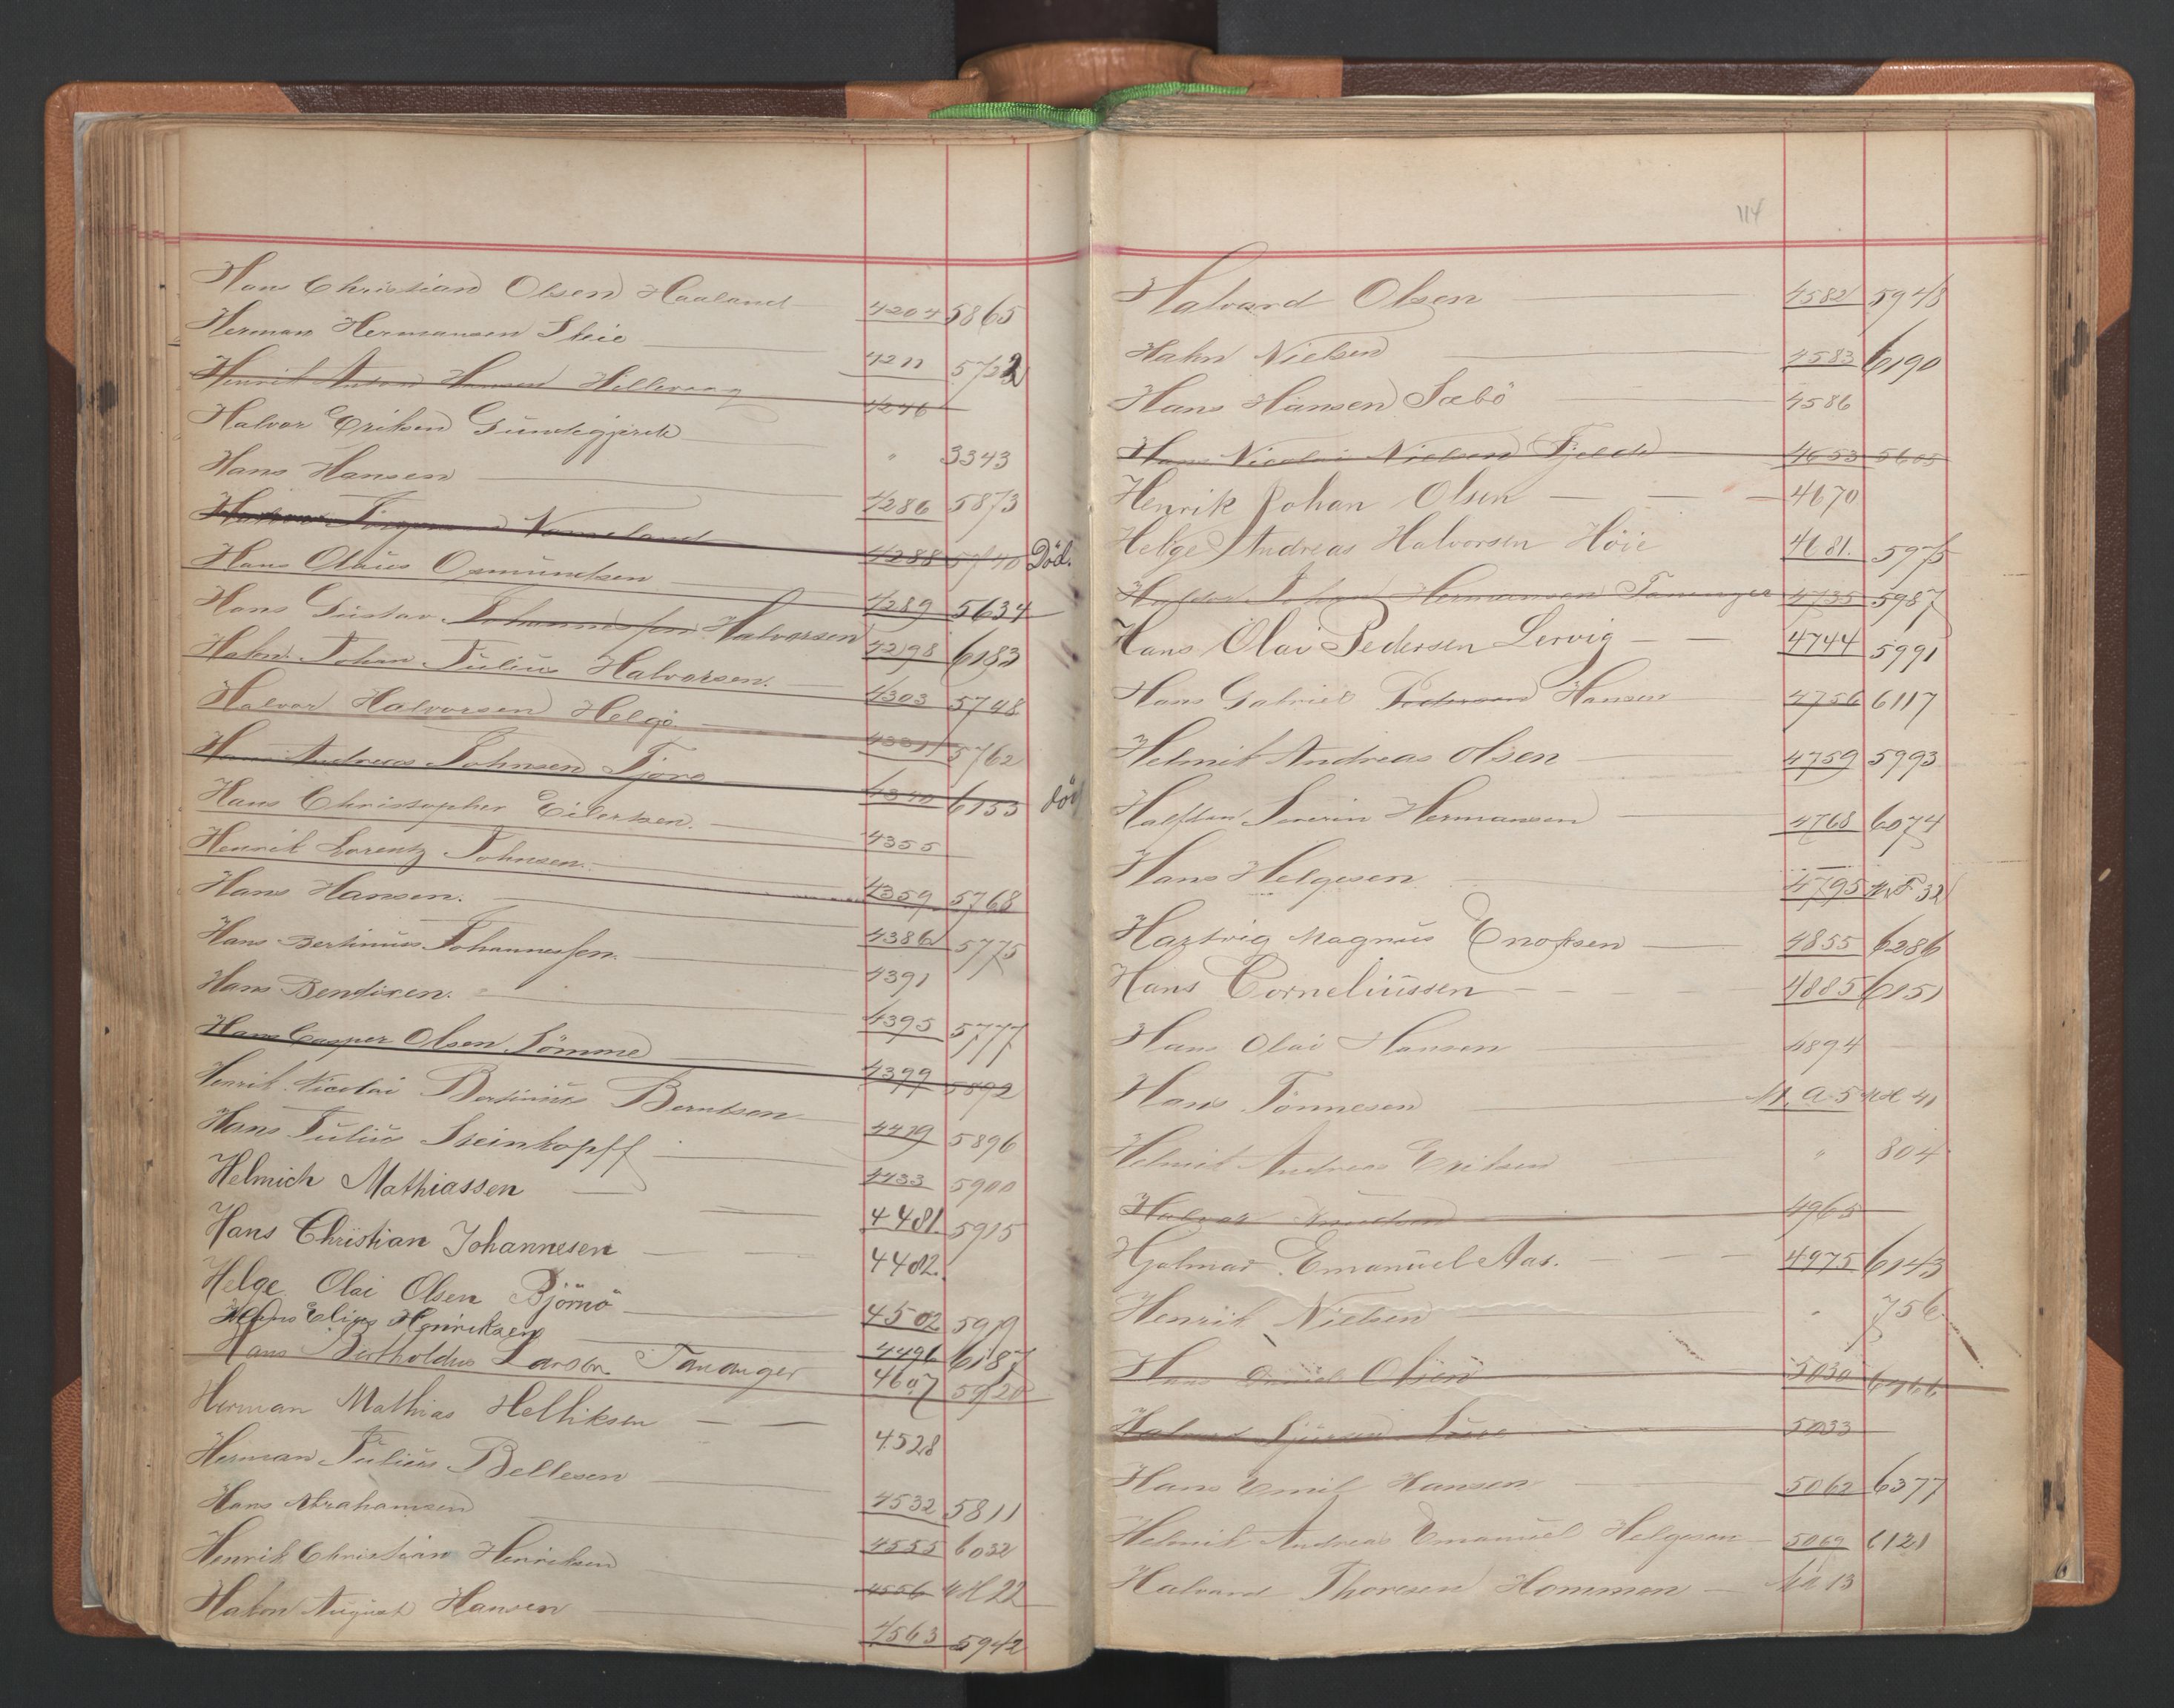 Hans Christian Olsen Haaland 4204 5865
Herman Hermansen Skeie 4211 5722
Henrik Anton Hansen Hillevaag 4246
Halvor Eriksen " 3343
Hans Hansen 4286 5873
4288 5740 Död.
Hans Olaus Osmundsen 4289 5634
Hans Gustav Johannessen Halvorsen 4298 6183
Hakon Johan Julius Halvorsen. 4303 5748
Halvor Halvorsen Helgö 5762
Hans Andreas Johnsen Tjore 4340 6153 död
Hans Christopher Eilertsen. 4355
Henrik Lorentz Johnsen. 4359 5768
Hans Hansen. 4386 5775
Hans Bertinius Johannessen. 4391
Hans Bendixen. 4395 5777
Hans Casper Olsen Sömme 4399 5892
Henrik Nicolai Bertinius Berntsen 4419 5896
Hans Julius Steinkopff 4433 5900
Helmich Mathiassen 4481. 5915
Hans Christian Johannesen 4482.
Helge Olai Olsen Björnö 4502 5919
Hans Elias Henriksen 4496 6187
Hans Bertholdus Larsen Tananger 4607 5920
Herman Mathias Helliksen 4528
Herman Julius Bellesen 4532 5811
Hans Abrahamsen 4555 6032
Henrik Christian Henriksen 4556 22
Hakon August Hansen 4563 5942
114
Halvard Olsen 4582 5948
Hakn Nielsen 4583 6190
Hans Hansen Sæbö 4586
Hans Nicolai Nielsen Fjelde 4653 5605
Henrik Johan Olsen 4670
Helge Andreas Halvorsen Höie 4681. 5975
Johan Hermansen Tananger 4735 5987
Hans Olai Pedersen Lervig 4744 5991
Hans Gabriel Pedersen Hansen 4756 6117
Helmik Andreas Olsen 4759 5993
Halfdan Severin Hermansen 4768 6074
Hans Helgesen 4795 32
Hartvig Magnus Enoksen 4855 6286
Hans Corneliussen 4885 6151
Hans Olai Hansen 4894
Hans Tönnesen M. A. 5 41
Helmik Andreas Eriksen " 804
Halvor Knudsen 4965
Hjalmar Emanuel Aas. 4975 6143
Henrik Nielsen " 756
Hans Daniel Olsen 5030 6966
Halvard 5033
Hans Emil Hansen 5062 6377
Helmik Andreas Emanuel Helgesen 5069 6121
Halvard Thoresen Hommen 13